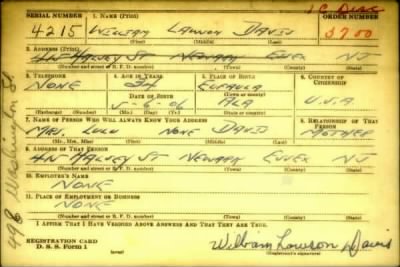 1 C Disc
SERIAL NUMBER 1. NAME (Print) ORDER NUMBER
4215 William Lawson Davis 3700
(First) (Middle) (Last)
2. ADDRESS (Print)
Newark Essex NJ
(Number and street or R. F. D. number) (Town) (County) (State)
3. TELEPHONE 4. AGE IN YEARS 5. PLACE OF BIRTH 6. COUNTRY OF CITIZENSHIP
None 34 Eufaula
DATE OF BIRTH (Town or county)
5-6-06 Ala U.S.A
(Exchange) (Number) (Mo.) (Day) (Yr.) (State or country)
7. NAME OF PERSON WHO WILL ALWAYS KNOW YOUR ADDRESS 8. RELATIONSHIP OF THAT PERSON
Mrs. Lulu None Davis Mother
(Mr., Mrs., Miss) (First) (Middle) (Last)
9. ADDRESS OF THAT PERSON
St Newark Essex NJ
(Number and street or R. F. D. number) (Town) (County) (State)
10. EMPLOYER'S NAME
None
11. PLACE OF EMPLOYMENT OR BUSINESS
None
(Number and street or R. F. D. number) (Town) (County) (State)
I AFFIRM THAT I HAVE VERIFIED ABOVE ANSWERS AND THAT THEY ARE TRUE.
REGISTRATION CARD
D. S. S. Form 1
William Lawson Davis
(Registrant's signature)
498 Washington St